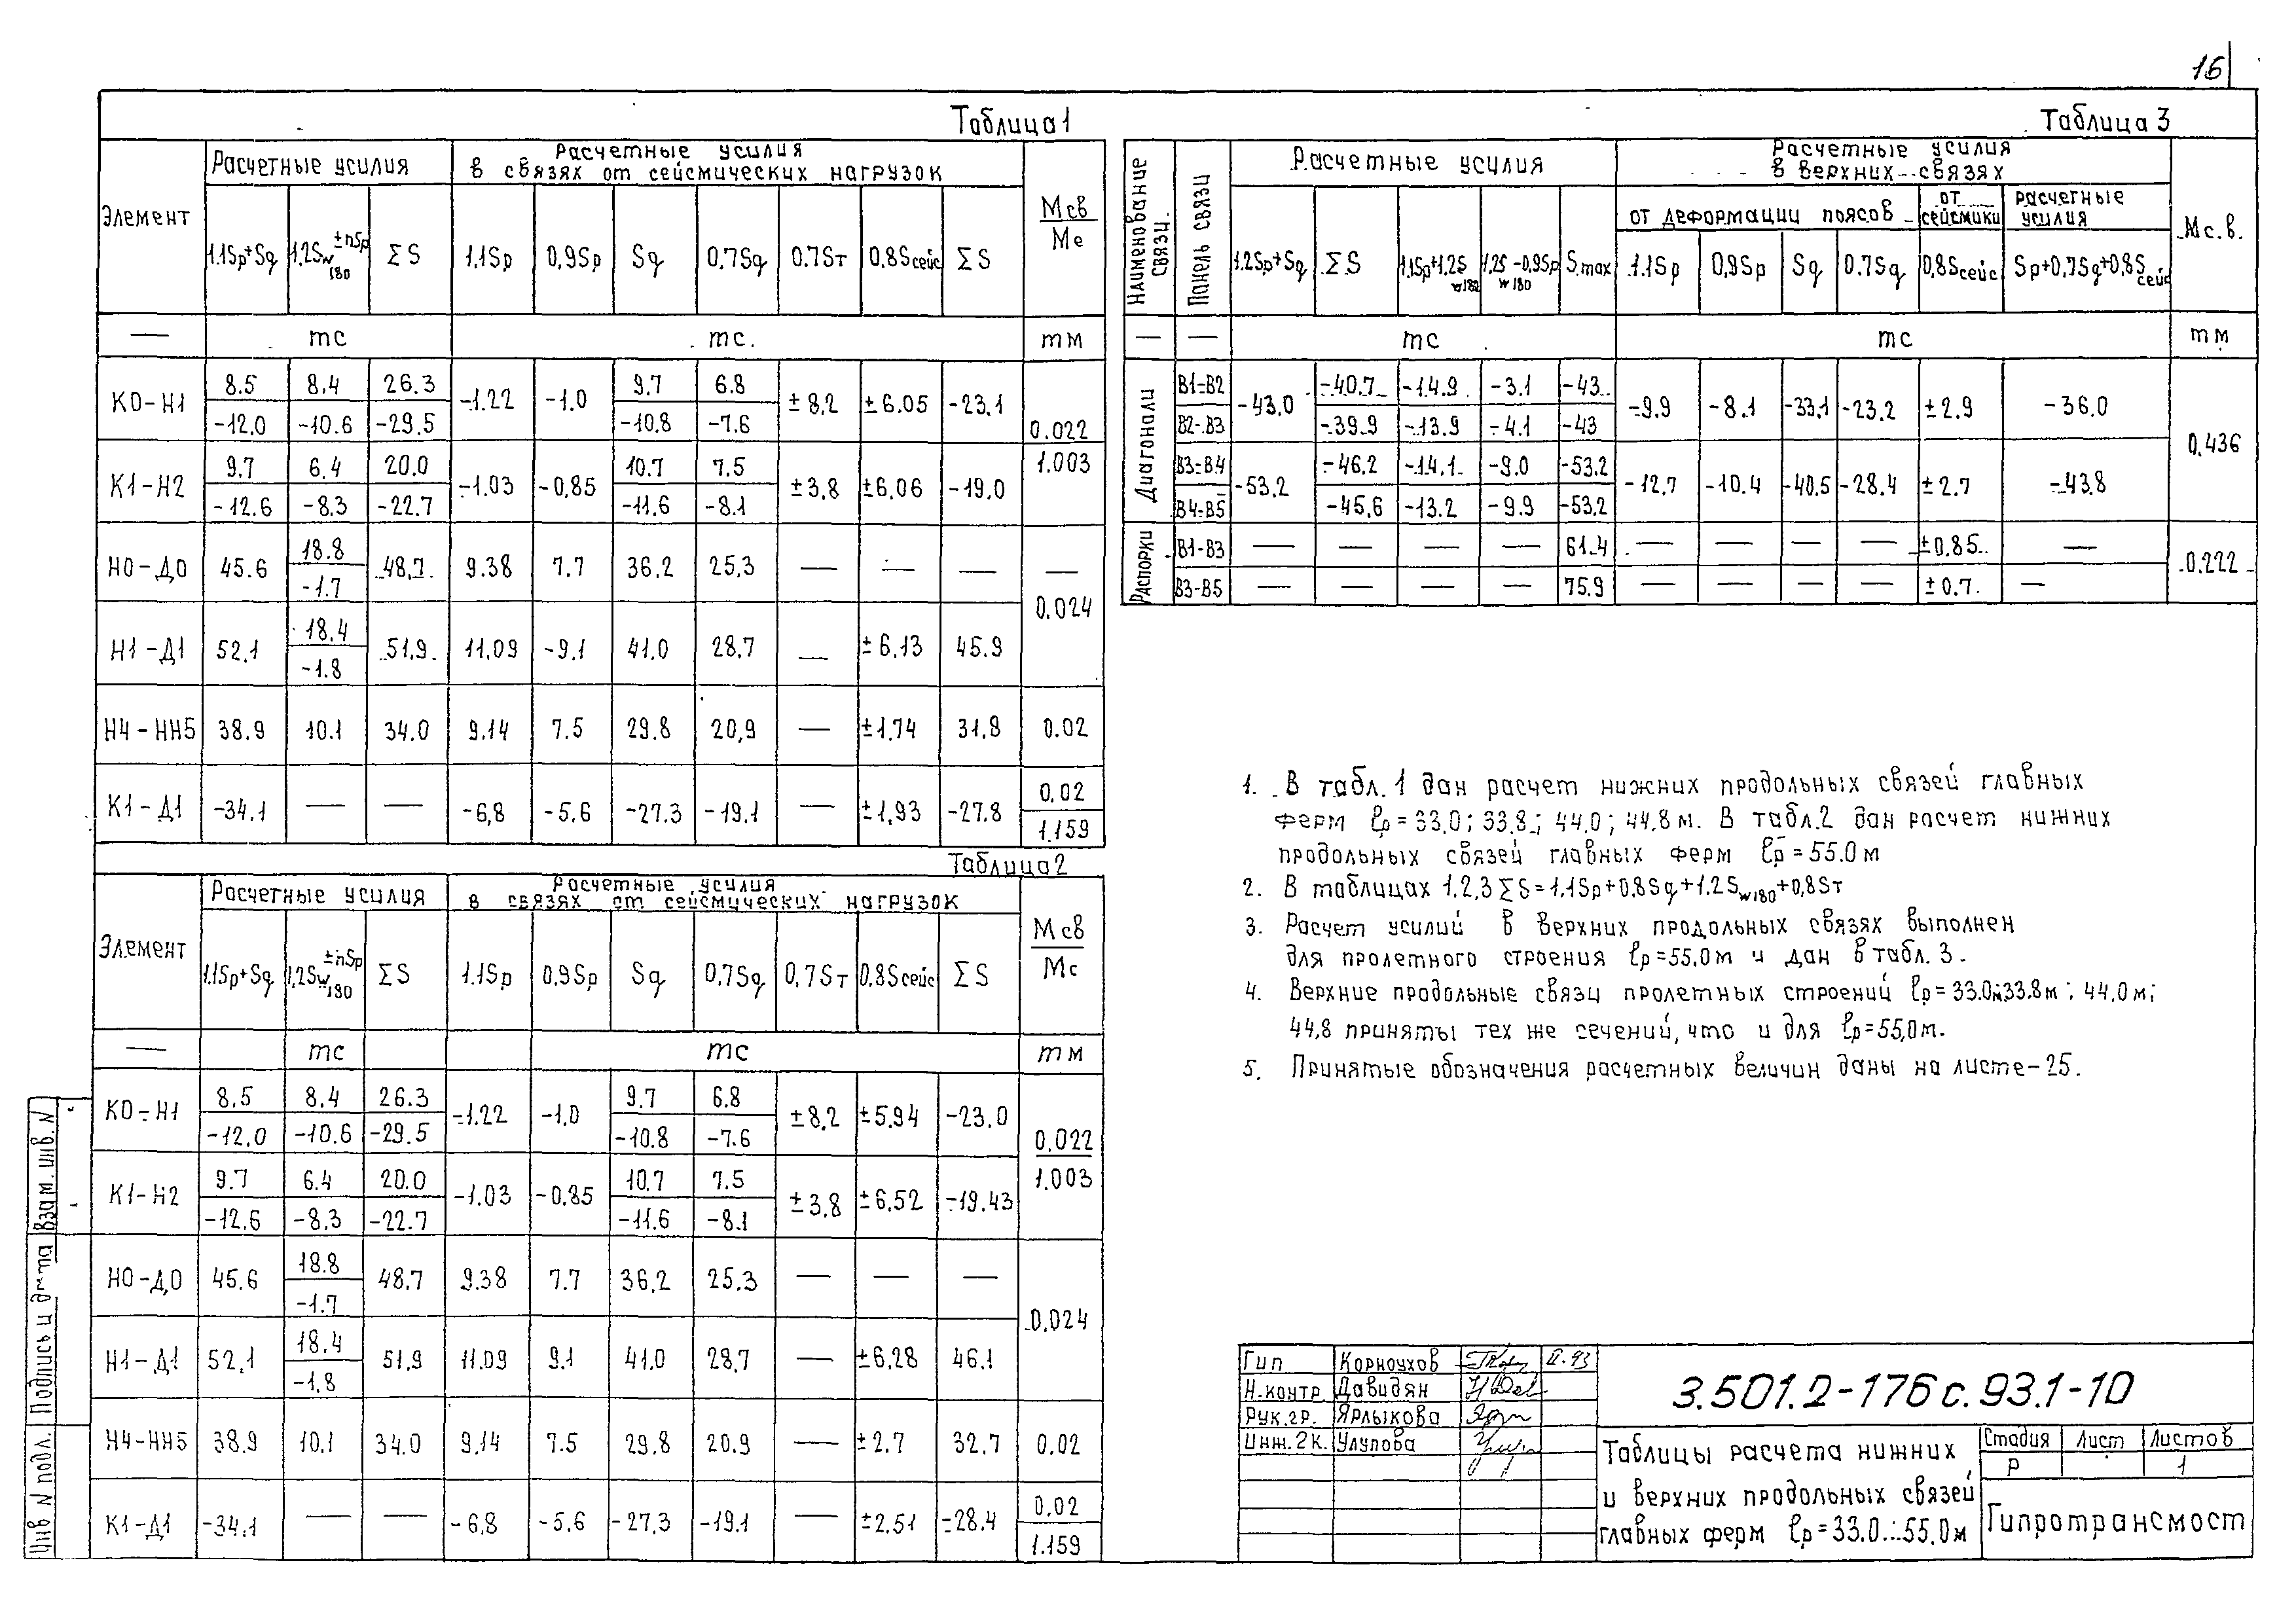 16
Таблица 1
Элемент | Расчетные усилия | Расчетные усилия в связях от сейсмических нагрузок | Мсв/Ме
1.1Sp+Sq | 1,2Sw180 ±nSp | ΣS | 1,1Sp | 0,9Sp | Sq | 0.7Sq | 0.7Sт | 0,8Sсейс | ΣS
— | тс | тс. | тм
К0-Н1 | 8.5 / -12.0 | 8.4 / -10.6 | 26.3 / -29.5 | -1.22 | -1.0 | 9.7 / -10.8 | 6.8 / -7.6 | ±8,2 | ±6.05 | -23,1 | 0.022
К1-Н2 | 9.7 / -12.6 | 6.4 / -8.3 | 20.0 / -22.7 | -1.03 | -0,85 | 10.7 / -11.6 | 7.5 / -8.1 | ±3,8 | ±6,06 | -19,0 | 1.003
Н0-Д0 | 45.6 | 18.8 / -1.7 | 48,7 | 9.38 | 7.7 | 36.2 | 25,3 | — | — | — | —
0,024
Н1-Д1 | 52,1 | 18,4 / -1.8 | 51,9 | 11,09 | -9.1 | 41.0 | 28.7 | — | ±6,13 | 45.9
Н4-НН5 | 38.9 | 10.1 | 34.0 | 9.14 | 7.5 | 29.8 | 20,9 | — | ±1,74 | 31,8 | 0.02
К1-Д1 | -34.1 | — | — | -6,8 | -5.6 | -27.3 | -19.1 | — | ±1,93 | -27.8 | 0.02 / 1.159
Таблица 2
Элемент | Расчетные усилия | Расчетные усилия в связях от сейсмических нагрузок | Мсв/Мс
1.1Sp+Sq | 1,2Sw180 ±nSp | ΣS | 1.1Sp | 0,9Sp | Sq | 0,7Sq | 0,7Sт | 0,8Sсейс | ΣS
— | тс | тс | тм
К0-Н1 | 8,5 / -12,0 | 8.4 / -10.6 | 26.3 / -29.5 | -1.22 | -1.0 | 9.7 / -10.8 | 6.8 / -7.6 | ±8,2 | ±5.94 | -23.0 | 0,022
К1-Н2 | 9.7 / -12,6 | 6.4 / -8,3 | 20.0 / -22.7 | -1.03 | -0,85 | 10,7 / -11.6 | 7.5 / -8.1 | ±3,8 | ±6,52 | -19,43 | 1.003
Н0-Д0 | 45.6 | 18.8 / -1.7 | 48,7 | 9.38 | 7.7 | 36,2 | 25.3 | — | — | —
0,024
Н1-Д1 | 52,1 | 18,4 / -1,8 | 51,9 | 11.09 | 9.1 | 41.0 | 28,7 | — | ±6,28 | 46,1
Н4-НН5 | 38.9 | 10,1 | 34.0 | 9.14 | 7.5 | 29.8 | 20.9 | — | ±2.7 | 32,7 | 0.02
К1-Д1 | -34,1 | — | — | -6,8 | -5.6 | -27,3 | -19.1 | — | ±2.51 | -28.4 | 0.02 / 1.159
Таблица 3
Наименование связи | Панель связи | Расчетные усилия | Расчетные усилия в верхних связях | Мс.в.
от деформации поясов | от сейсмики | расчетные усилия
1.2Sp+Sq | ΣS | 1,1Sp+1,2S w182 | 1,2S-0,9Sp w180 | Smax | 1.1Sp | 0,9Sp | Sq | 0.7Sq | 0,8Sсейс | Sp+0,7Sq+0,8Sсейс
— | — | тс | тс | тм
Диагонали
В1-В2 | -43,0 | -40.7 | -14.9 | -3.1 | -43 | -9.9 | -8.1 | -33,1 | -23,2 | ±2.9 | -36.0
В2-В3 | -39.9 | -13.9 | -4.1 | -43
0,436
В3-В4 | -53,2 | -46.2 | -14.1 | -9.0 | -53.2 | -12,7 | -10.4 | -40.5 | -28.4 | ±2.7 | -43.8
В4-В5 | -45,6 | -13.2 | -9.9 | -53,2
Распорки
В1-В3 | — | — | — | — | 61.4 | — | — | — | — | ±0,85 | —
0.222
В3-В5 | — | — | — | — | 75.9 | — | — | — | — | ±0.7 | —
1. В табл. 1 дан расчет нижних продольных связей главных
ферм ℓр=33,0; 33,8; 44,0; 44,8 м. В табл.2 дан расчет нижних
продольных связей главных ферм ℓр=55.0м
2. В таблицах 1,2,3 ΣS=1,1Sp+0,8Sq+1.2Sw180+0,8Sт
3. Расчет усилий в верхних продольных связях выполнен
для пролетного строения ℓр=55,0м и дан в табл. 3.
4. Верхние продольные связи пролетных строений ℓр=33.0м;33.8м; 44,0м;
44,8 приняты тех же сечений, что и для ℓр=55,0м.
5. Принятые обозначения расчетных величин даны на листе-25.
Гип | Корноухов | II.93
Н.контр | Давидян
Рук.гр. | Ярлыкова
Инж.2К. | Улупова
3.501.2-176с.93.1-10
Таблицы расчета нижних
и верхних продольных связей
главных ферм ℓр=33.0...55,0м
Стадия | Лист | Листов
Р | 1
Гипротрансмост
Инв N подл. | Подпись и дата | Взам. инв. N